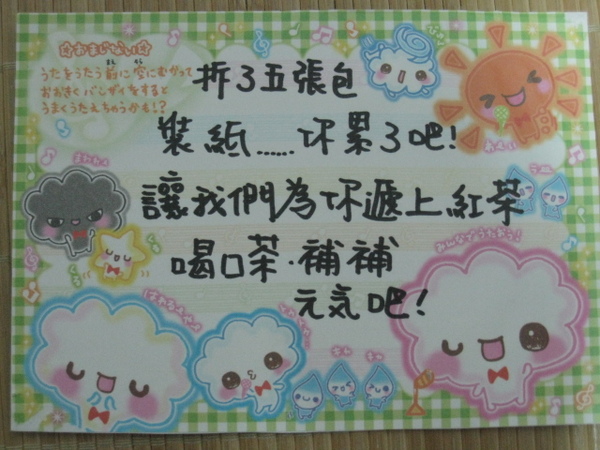 ☆おまじない☆
うたをうたう前に空にむかって
おおきくバンザイをすると
うまくうたえちゃうかも!?
拆了五張包
裝紙……你累了吧!
讓我們為你遞上紅茶
喝口茶.補補
元気吧!
みんなでうたおう!